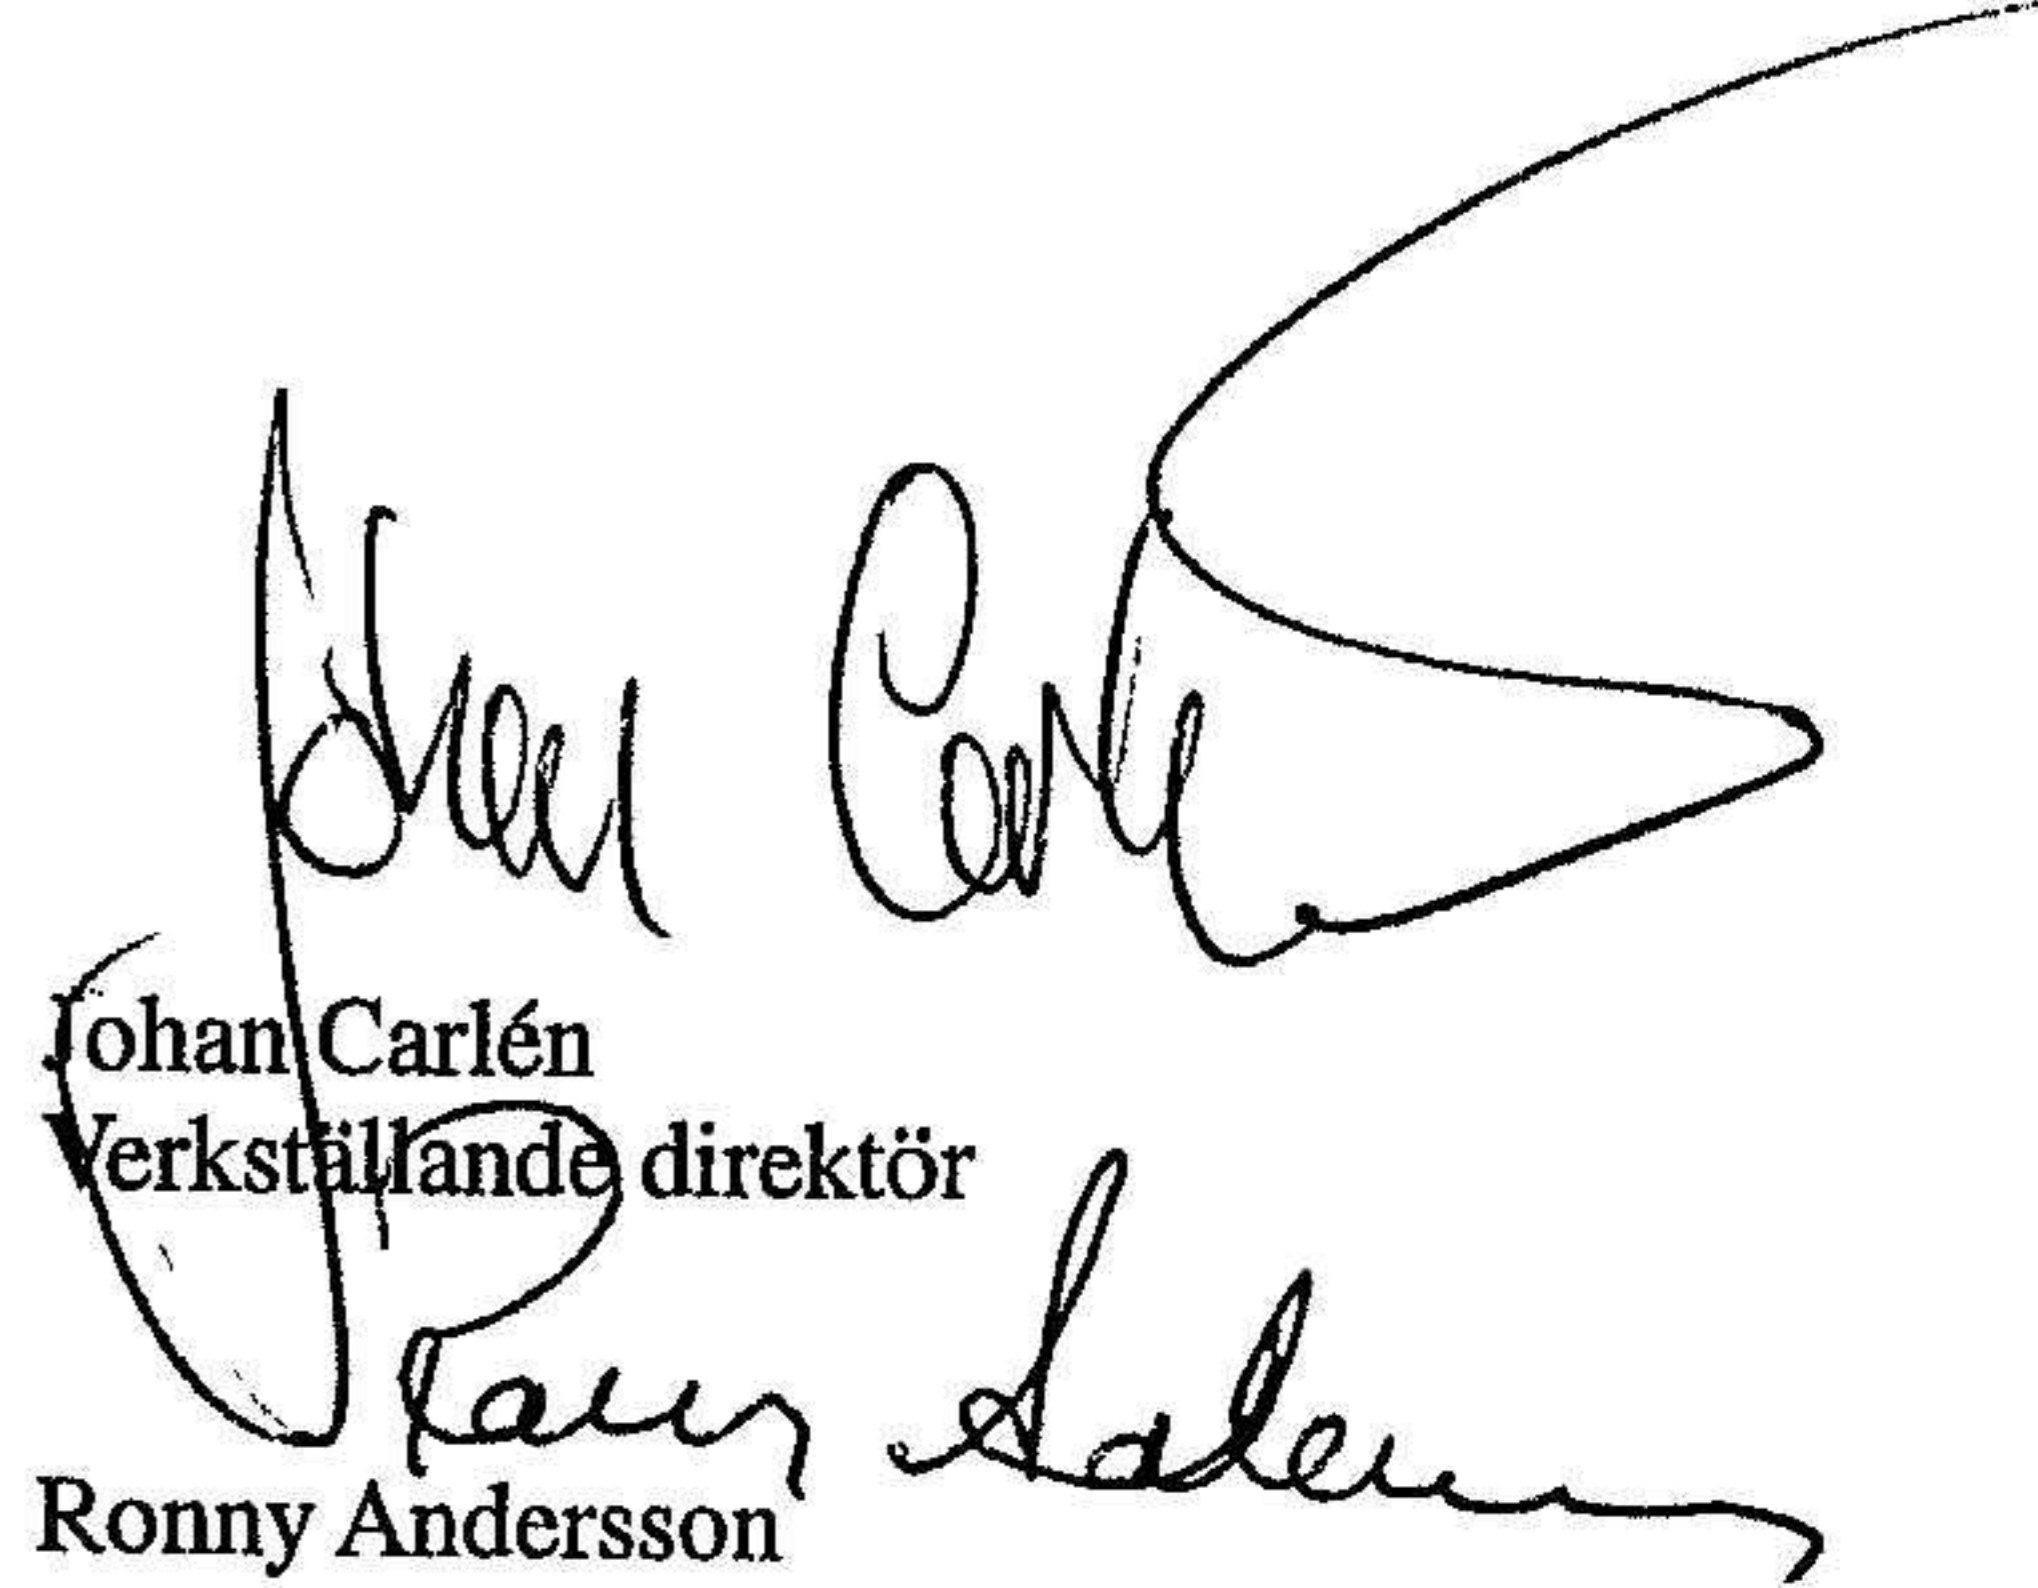 Johan Carlén
Johan Carlén
Verkställande direktör
Ronny Andersson
Ronny Andersson